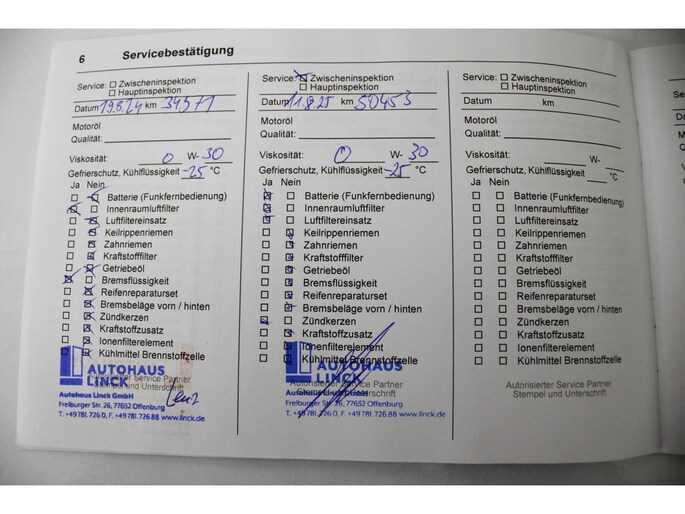 6 Servicebestätigung
Service: Zwischeninspektion
Hauptinspektion
Datum 19.6.24 km 34371
Motoröl
Qualität:
Viskosität: 0 W- 30
Gefrierschutz, Kühlflüssigkeit -25 °C
Ja Nein
Batterie (Funkfernbedienung)
Innenraumluftfilter
Luftfiltereinsatz
Keilrippenriemen
Zahnriemen
Kraftstofffilter
Getriebeöl
Bremsflüssigkeit
Reifenreparaturset
Bremsbeläge vorn / hinten
Zündkerzen
Kraftstoffzusatz
Ionenfilterelement
Kühlmittel Brennstoffzelle
AUTOHAUS
LINCK
Autorisierter Service Partner
Stempel und Unterschrift
Autohaus Linck GmbH
Freiburger Str. 26, 77652 Offenburg
T. +49 781. 726 0, F. +49 781. 726 88 www.linck.de
Service: Zwischeninspektion
Hauptinspektion
Datum 11.8.25 km 50453
Motoröl
Qualität:
Viskosität: 0 W- 30
Gefrierschutz, Kühlflüssigkeit -25 °C
Ja Nein
Batterie (Funkfernbedienung)
Innenraumluftfilter
Luftfiltereinsatz
Keilrippenriemen
Zahnriemen
Kraftstofffilter
Getriebeöl
Bremsflüssigkeit
Reifenreparaturset
Bremsbeläge vorn / hinten
Zündkerzen
Kraftstoffzusatz
Ionenfilterelement
Kühlmittel Brennstoffzelle
AUTOHAUS
LINCK
Autorisierter Service Partner
Autohaus Linck GmbH
Freiburger Str. 26, 77652 Offenburg
T. +49 781. 726 0, F. +49 781. 726 88 www.linck.de
Service: Zwischeninspektion
Hauptinspektion
Datum km
Motoröl
Qualität:
Viskosität: W-
Gefrierschutz, Kühlflüssigkeit °C
Ja Nein
Batterie (Funkfernbedienung)
Innenraumluftfilter
Luftfiltereinsatz
Keilrippenriemen
Zahnriemen
Kraftstofffilter
Getriebeöl
Bremsflüssigkeit
Reifenreparaturset
Bremsbeläge vorn / hinten
Zündkerzen
Kraftstoffzusatz
Ionenfilterelement
Kühlmittel Brennstoffzelle
Autorisierter Service Partner
Stempel und Unterschrift